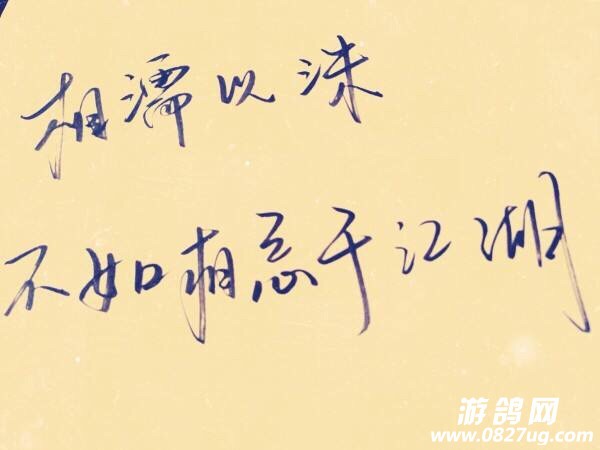 相濡以沫
不如相忘于江湖
游鸽网
www.0827ug.com